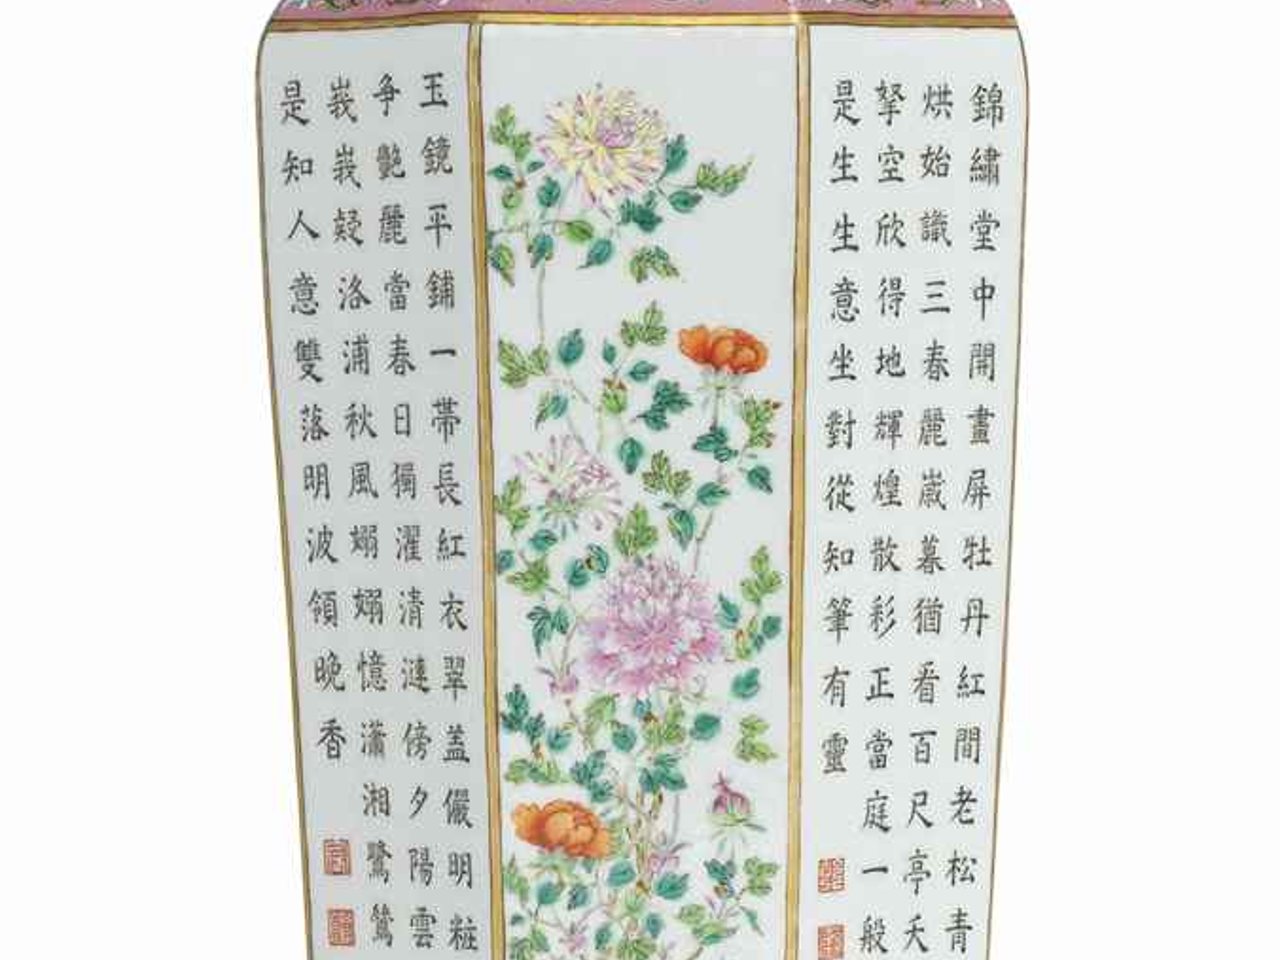 錦繡堂中開畫屏牡丹紅間老松青
烘始識三春麗歲暮猶看百尺亭夭
拏空欣得地輝煌散彩正當庭一般
是生生意坐對從知筆有靈
玉鏡平鋪一帶長紅衣翠盖儼明粧
争艷麗當春日獨濯清漣傍夕陽雲
峩峩疑洛浦秋風嫋嫋憶瀟湘鷺鶿
是知人意雙落明波領晚香